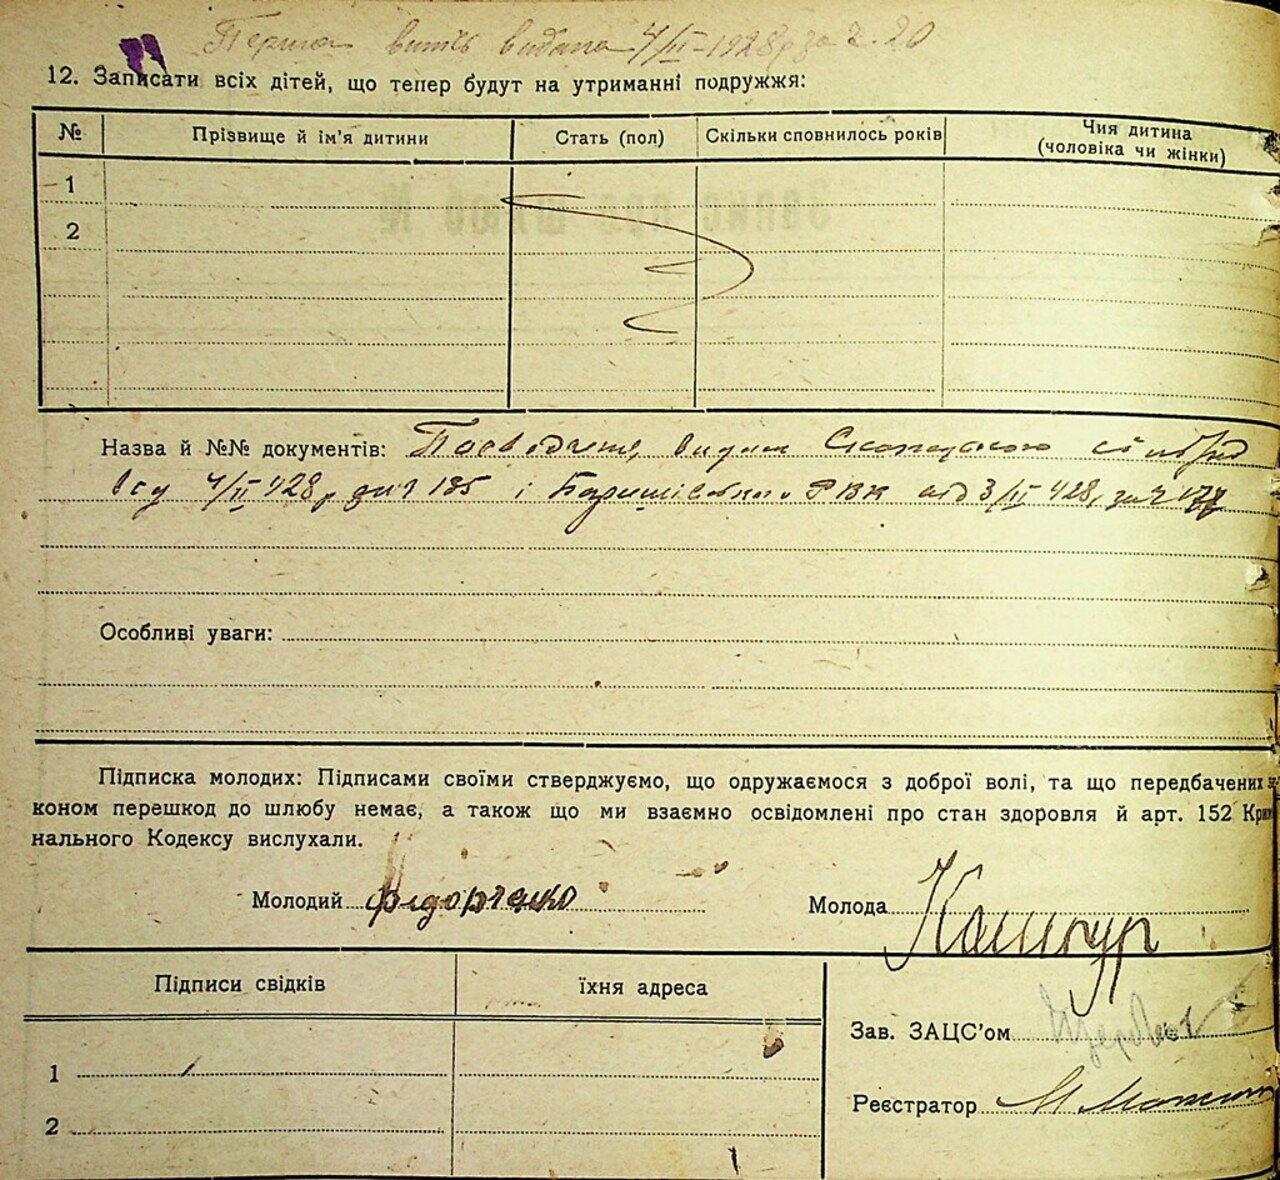 Перша випись видана 4/II-1928р за ч. 20
12. Записати всіх дітей, що тепер будут на утриманні подружжя:
№ Прізвище й ім'я дитини Стать (пол) Скільки сповнилось років Чия дитина (чоловіка чи жінки)
1
2
Назва й №№ документів: Посвідчення, видане
4/II 928р за ч 185 і Баришівського РВК від 3/II 928р за ч
Особливі уваги:
Підписка молодих: Підписами своїми стверджуємо, що одружаємося з доброї волі, та що передбачених
коном перешкод до шлюбу немає, а також що ми взаємно освідомлені про стан здоровля й арт. 152 Крим
нального Кодексу вислухали.
Молодий Федорченко Молода Кашпур
Підписи свідків їхня адреса
Зав. ЗАЦС'ом
1
Реєстратор
2